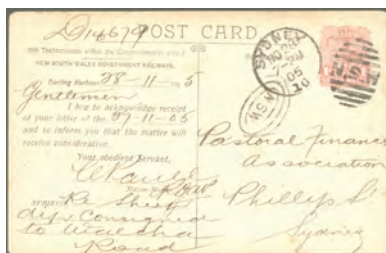 D14679
POST CARD
(For Transmission within the Commonwealth only.)
NEW SOUTH WALES GOVERNMENT RAILWAYS.
Darling Harbour 28-11-05
Gentlemen
I beg to acknowledge receipt
of your letter of the 27-11-05
and to inform you that the matter will
receive consideration.
Your obedient Servant,
Station Master
SUBJECT: Re Sheep
consigned
to Walcha
Road
SYDNEY
NO 28
05
10
NSW
N.S.W
Pastoral Finance
Association
Phillip St
Sydney